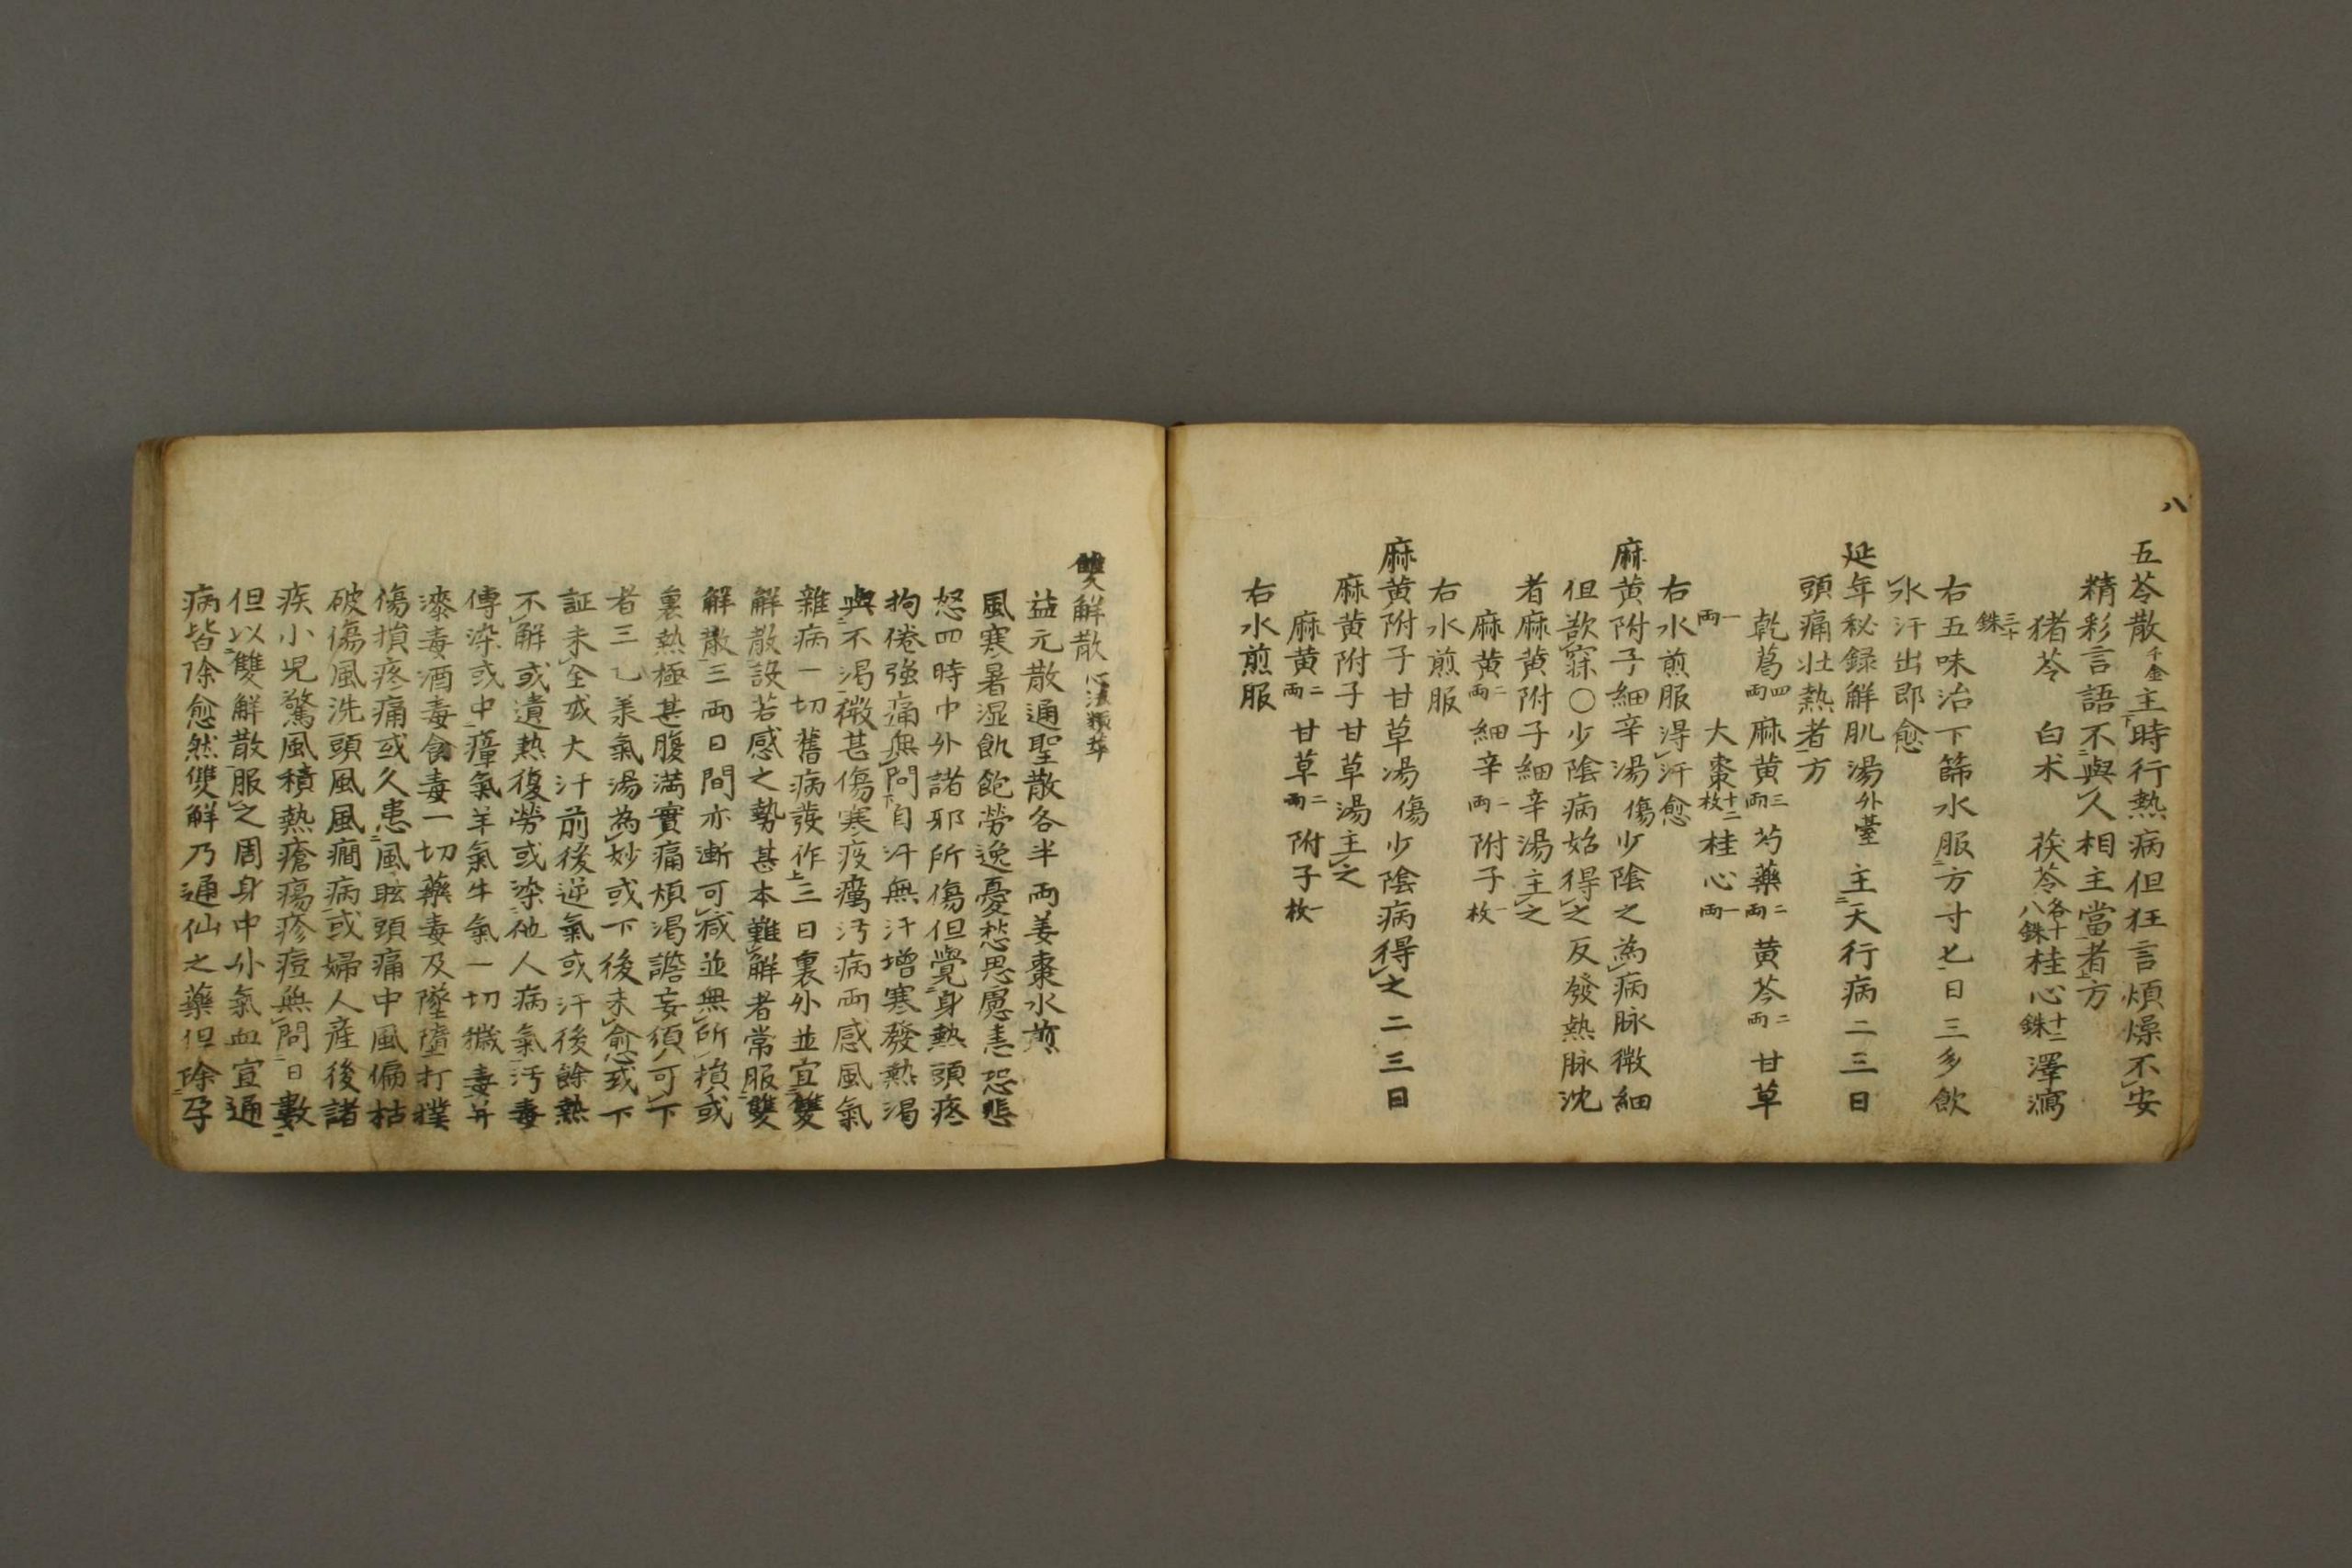 八
五苓散千金主時行熱病但狂言煩燥不安
精彩言語不與人相主當者方
猪苓 白术 茯苓各十八銖桂心十二銖澤瀉
三十銖
右五味治下篩水服方寸匕日三多飲
水汗出即愈
延年秘録解肌湯外臺主天行病二三日
頭痛壮熱者方
乾葛四両麻黄三両芍藥二両黄芩二両甘草
一両 大棗十二枚桂心一両
右水煎服得汗愈
麻黄附子細辛湯傷少陰之為病脉微細
但欲寐〇少陰病始得之反發熱脉沈
者麻黄附子細辛湯主之
麻黄二両細辛二両附子一枚
右水煎服
麻黄附子甘草湯傷少陰病得之二三日
麻黄附子甘草湯主之
麻黄二両甘草二両附子一枚
右水煎服
雙解散心法類萃
益元散通聖散各半両姜棗水煎
風寒暑湿飢飽勞逸憂愁思慮恚恐悲
怒四時中外諸邪所傷但覺身熱頭疼
拘倦強痛無問自汗無汗増寒發熱渴
與不渴微甚傷寒疫癘汚病両感風氣
雜病一切舊病發作三日裏外並宜雙
解散設若感之勢甚本難解者常服雙
解散三両日間亦漸可減並無所損或
裏熱極甚腹満實痛煩渴譫妄須可下
者三乙羕氣湯為妙或下後未愈或下
証未全或大汗前後逆氣或汗後餘熱
不解或遺熱復勞或染他人病氣汚毒
傳染或中瘴氣羊氣牛氣一切穢毒并
漆毒酒毒食毒一切藥毒及墜墮打撲
傷損疼痛或久患風眩頭痛中風偏枯
破傷風洗頭風風癇病或婦人産後諸
疾小児驚風積熱瘡瘍疹痘無問日數
但以雙解散服之周身中外氣血宣通
病皆除愈然雙解乃通仙之藥但除孕